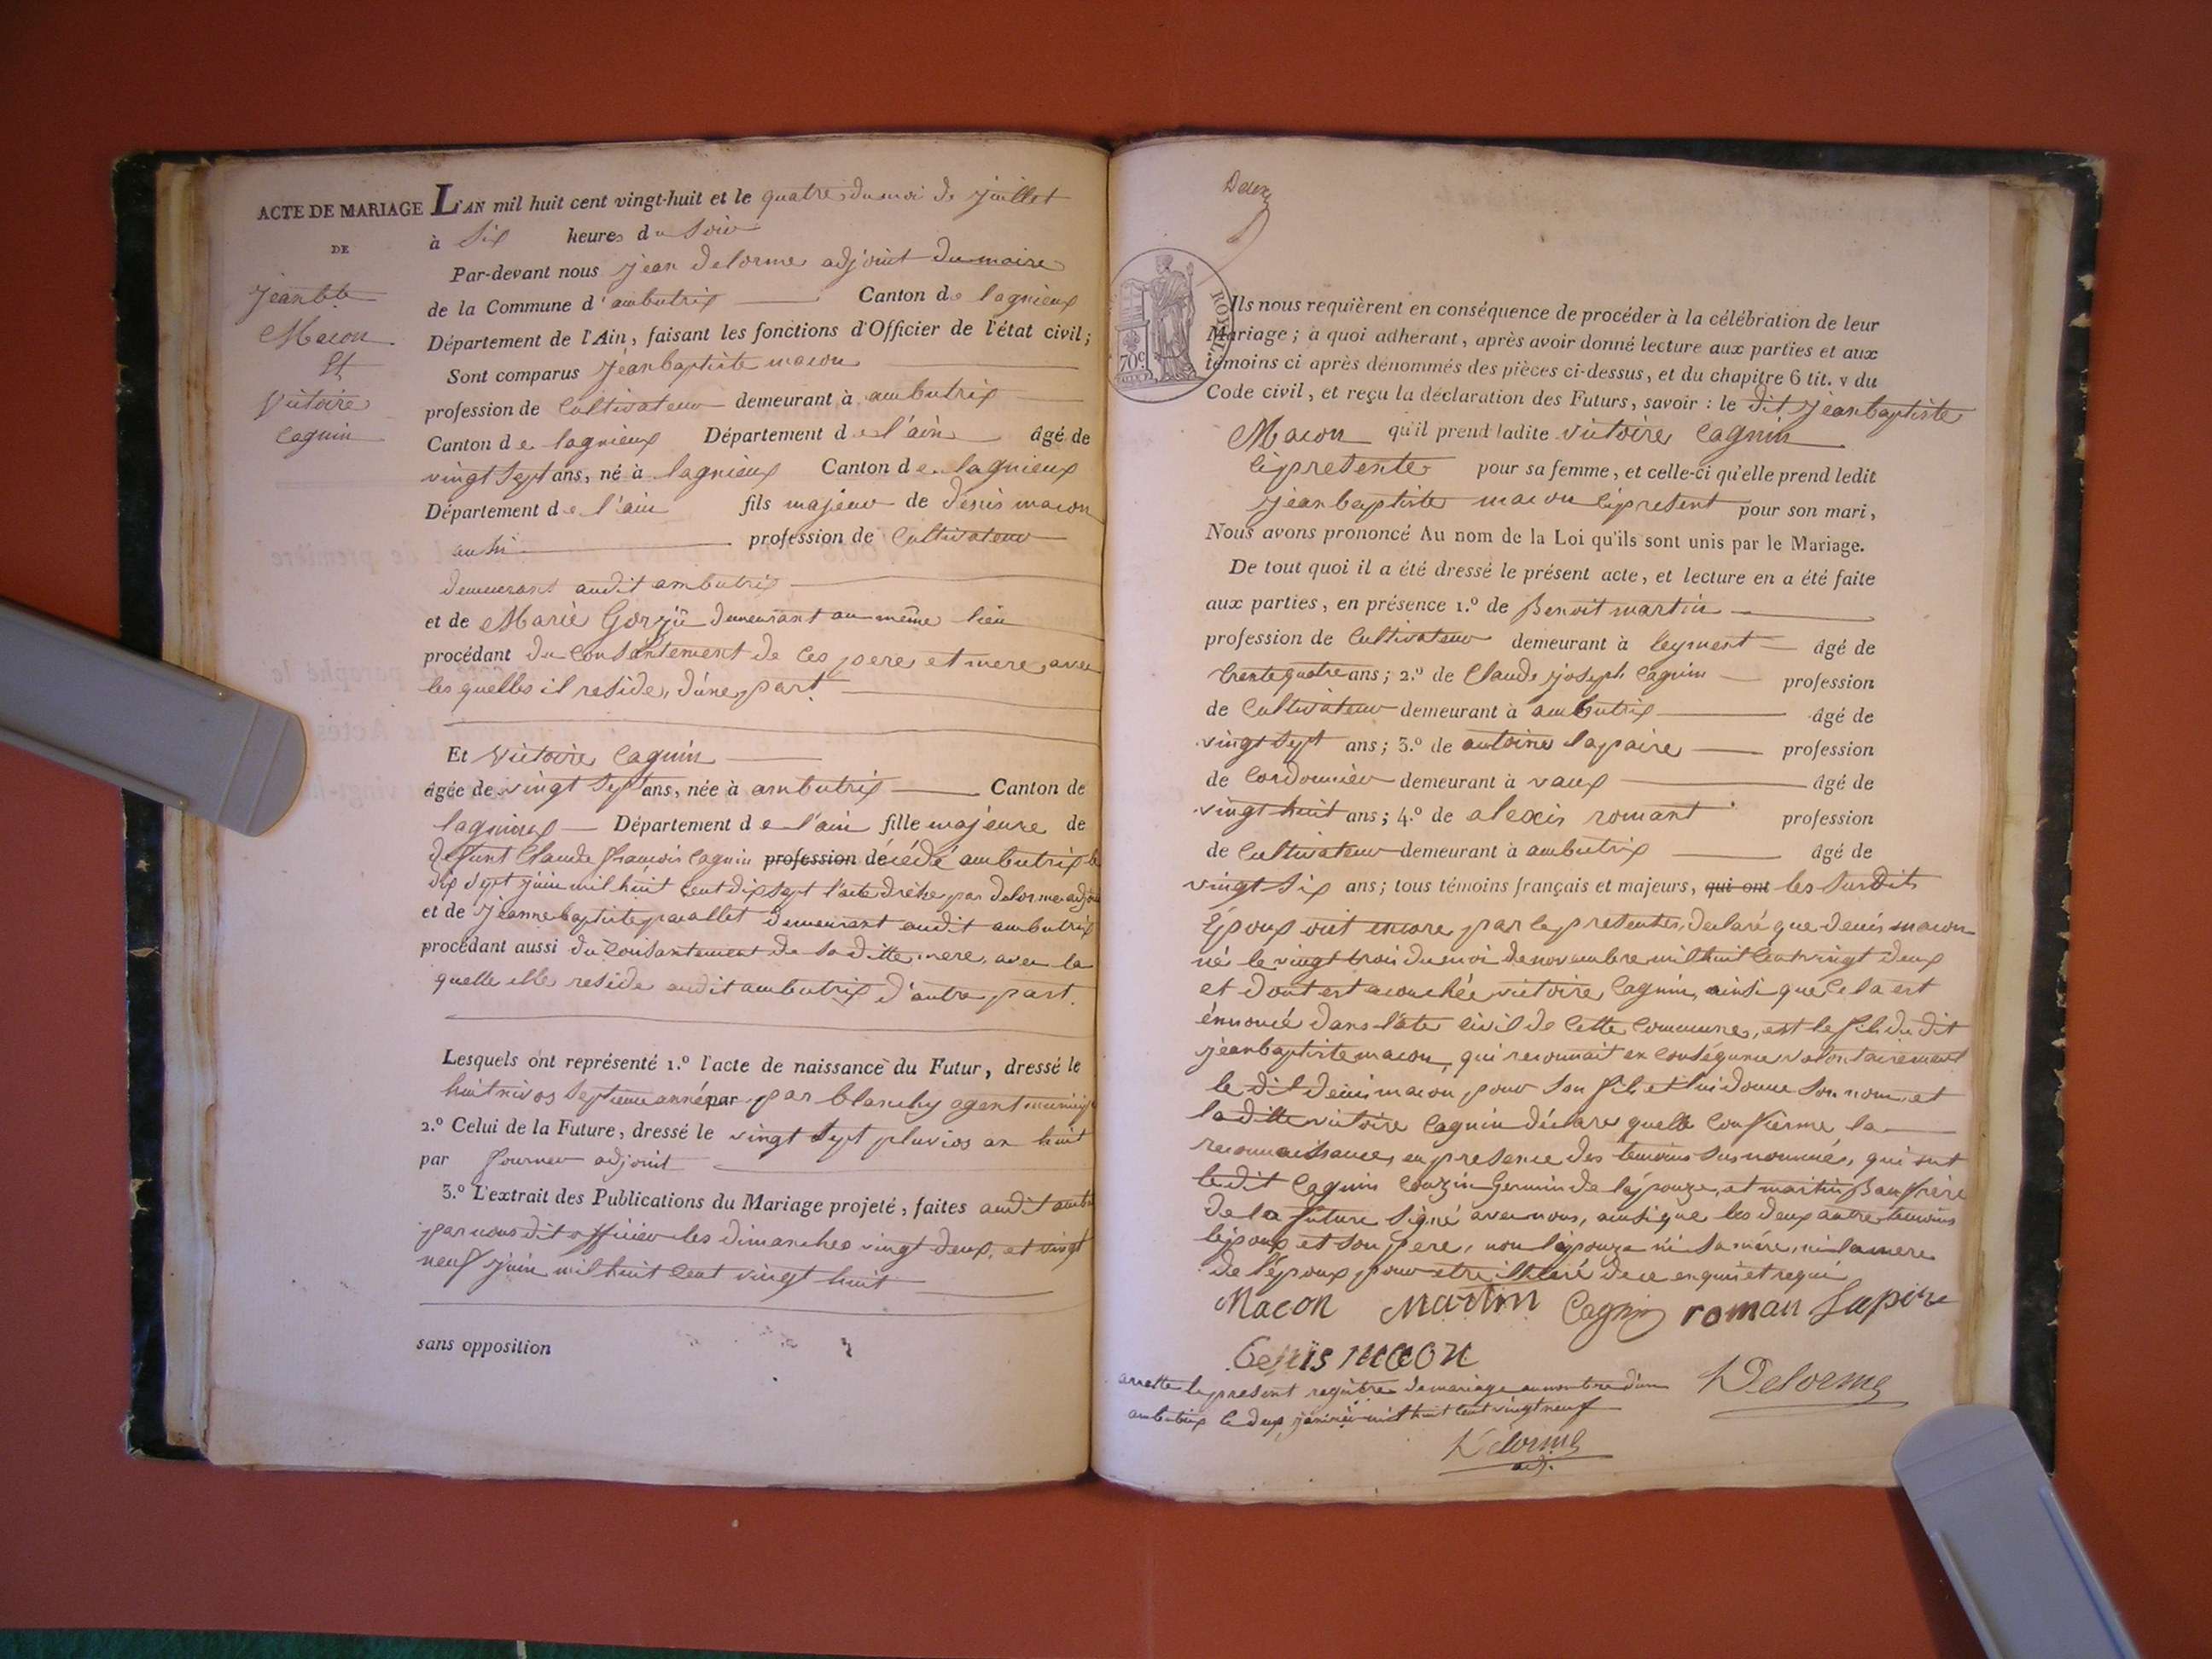 ACTE DE MARIAGE
DE
Jean bte
Macon
Et
Victoire
Cagnin
L'AN mil huit cent vingt-huit et le quatre du moi de juillet
à Six heures du Soir
Par-devant nous jean delorme adjoint du maire
de la Commune d'ambutrix Canton de lagnieux
Département de l'Ain, faisant les fonctions d'Officier de l'état civil;
Sont comparus jeanbaptiste macon
profession de Cultivateur demeurant à ambutrix
Canton de lagnieux Département de l'ain âgé de
vingt Sept ans, né à lagnieux Canton de lagnieux
Département de l'ain fils majeur de denis macon
aussi profession de Cultivateur
demeurant audit ambutrix
et de Marie Gorjü demeurant au même lieu
procédant du Consentement de Ces pere et mere, avec
les quelles il reside, d'une part
Et Victoire Cagnin
âgée de vingt Sept ans, née à ambutrix Canton de
lagnieux Département de l'ain fille majeure de
defunt Claude francois Cagnin profession décédé ambutrix le
dix Sept juin mil huit Cent dix Sept l'acte par delorme adjoi
et de jeannebaptiste demeurant audit ambutrix
procédant aussi du Consantement de Sa ditte mere, avec la
quelle elle reside audit ambutrix d'autre part.
Lesquels ont représenté 1.º l'acte de naissance du Futur, dressé le
huit nivos Septieme année par par blanchy agent
2.º Celui de la Future, dressé le vingt Sept pluvios an huit
par fournier adjoint
3.º L'extrait des Publications du Mariage projeté, faites audit amb
par nous dit officier les dimanches vingt deux, et vingt
neuf juin mil huit Cent vingt huit
sans opposition
Deux
ROYAL
70c.
Ils nous requièrent en conséquence de procéder à la célébration de leur
Mariage; à quoi adhérant, après avoir donné lecture aux parties et aux
témoins ci après dénommés des pièces ci-dessus, et du chapitre 6 tit. v du
Code civil, et reçu la déclaration des Futurs, savoir: le dit jeanbaptiste
Macon qu'il prend ladite victoire Cagnin
Cipresente pour sa femme, et celle-ci qu'elle prend ledit
jeanbaptiste macon Cipresent pour son mari,
Nous avons prononcé Au nom de la Loi qu'ils sont unis par le Mariage.
De tout quoi il a été dressé le présent acte, et lecture en a été faite
aux parties, en présence 1.º de Benoit martin
profession de Cultivateur demeurant à leyment âgé de
trente quatre ans; 2.º de Claude joseph Cagnin profession
de Cultivateur demeurant à ambutrix âgé de
vingt Sept ans; 3.º de antoine lapaire profession
de Cordonnier demeurant à vaux âgé de
vingt huit ans; 4.º de alexis romant profession
de Cultivateur demeurant à ambutrix âgé de
vingt Six ans; tous témoins français et majeurs, qui ont les Susdits
Époux ont encore par le presentes, declaré que denis macon
né le vingt trois du moi de novembre mil huit Cent vingt deux
et dont est acouchée victoire Cagnin, ainsi que Cela est
énnoncé dans l'ate civil de Cette Commune, est le fils du dit
jeanbaptiste macon, qui reconnait en Conséquence volontairement
le dit denis macon pour Son fils et lui donne Son nom, et
la ditte victoire Cagnin déclare quelle Confierme la
reconnaissance, en presence des temoins Susnommés, qui sont
le dit Cagnin Couzin Germin de l'épouze, et martin Beaufrère
de la future Signé avec nous, ainsi que les deux autre temoins
l'époux et Son pere, non l'épouze ni Sa mére, ni la mere
de l'époux pour etre illiteré de ce enquis et requi
Macon Martin Cagnin roman Lapire
Denis macon
arrette le present registre de mariage au nombre d'un
ambutrix le deux janvier mil huit Cent vingt neuf
Delorme
Delorme
adj.